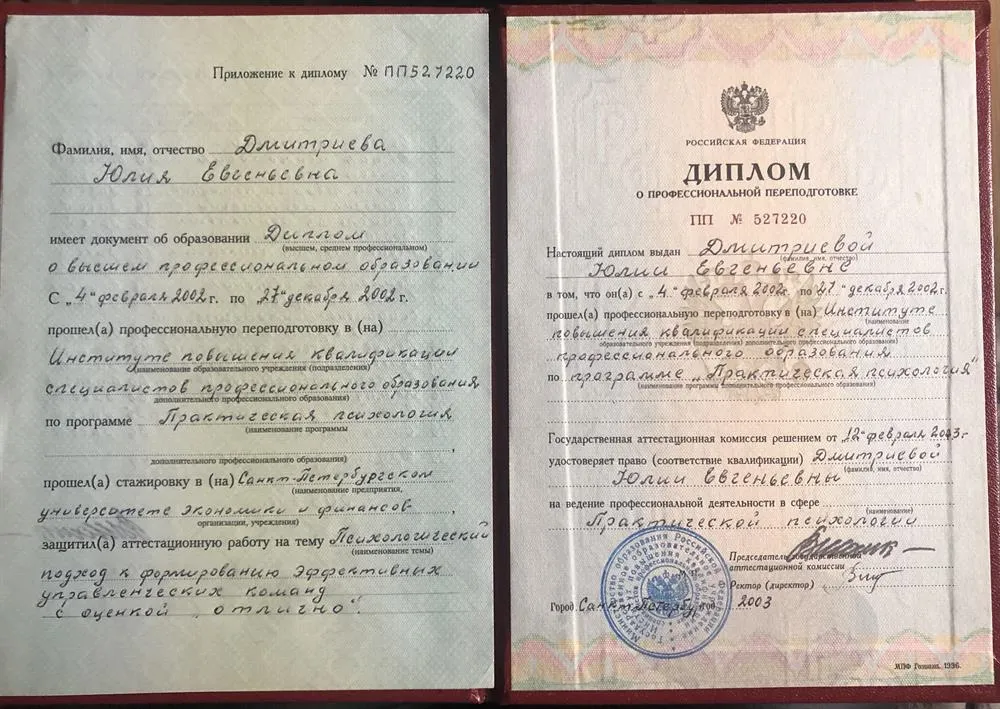 Приложение к диплому № ПП527220
Фамилия, имя, отчество Дмитриева
Юлия Евгеньевна
имеет документ об образовании Диплом
(высшем, среднем профессиональном)
о высшем профессиональном образовании
С „4" февраля 2002 г. по „27" декабря 2002 г.
прошел(а) профессиональную переподготовку в (на)
Институте повышения квалификации
(наименование образовательного учреждения (подразделения)
специалистов профессионального образования
дополнительного профессионального образования)
по программе Практическая психология
(наименование программы
дополнительного профессионального образования)
прошел(а) стажировку в (на) Санкт-Петербургском
(наименование предприятия,
университете экономики и финансов,
организации, учреждения)
защитил(а) аттестационную работу на тему Психологический
(наименование темы)
подход к формированию эффективных
управленческих команд
с оценкой „отлично".
РОССИЙСКАЯ ФЕДЕРАЦИЯ
ДИПЛОМ
О ПРОФЕССИОНАЛЬНОЙ ПЕРЕПОДГОТОВКЕ
ПП № 527220
Настоящий диплом выдан Дмитриевой
(фамилия, имя, отчество)
Юлии Евгеньевне
в том, что он(а) с „4" февраля 2002г. по „27" декабря 2002г.
прошел(а) профессиональную переподготовку в (на) Институте
(наименование
повышения квалификации специалистов
образовательного учреждения (подразделения) дополнительного профессионального образования)
профессионального образования
по программе „Практическая психология"
(наименование программы дополнительного профессионального образования)
Государственная аттестационная комиссия решением от „12" февраля 2003 г.
удостоверяет право (соответствие квалификации) Дмитриевой
(фамилия, имя, отчество)
Юлии Евгеньевны
на ведение профессиональной деятельности в сфере
(наименование)
Практической психологии
Председатель государственной
аттестационной комиссии
Ректор (директор)
Город Санкт-Петербург год 2003
МПФ Гознака. 1996.